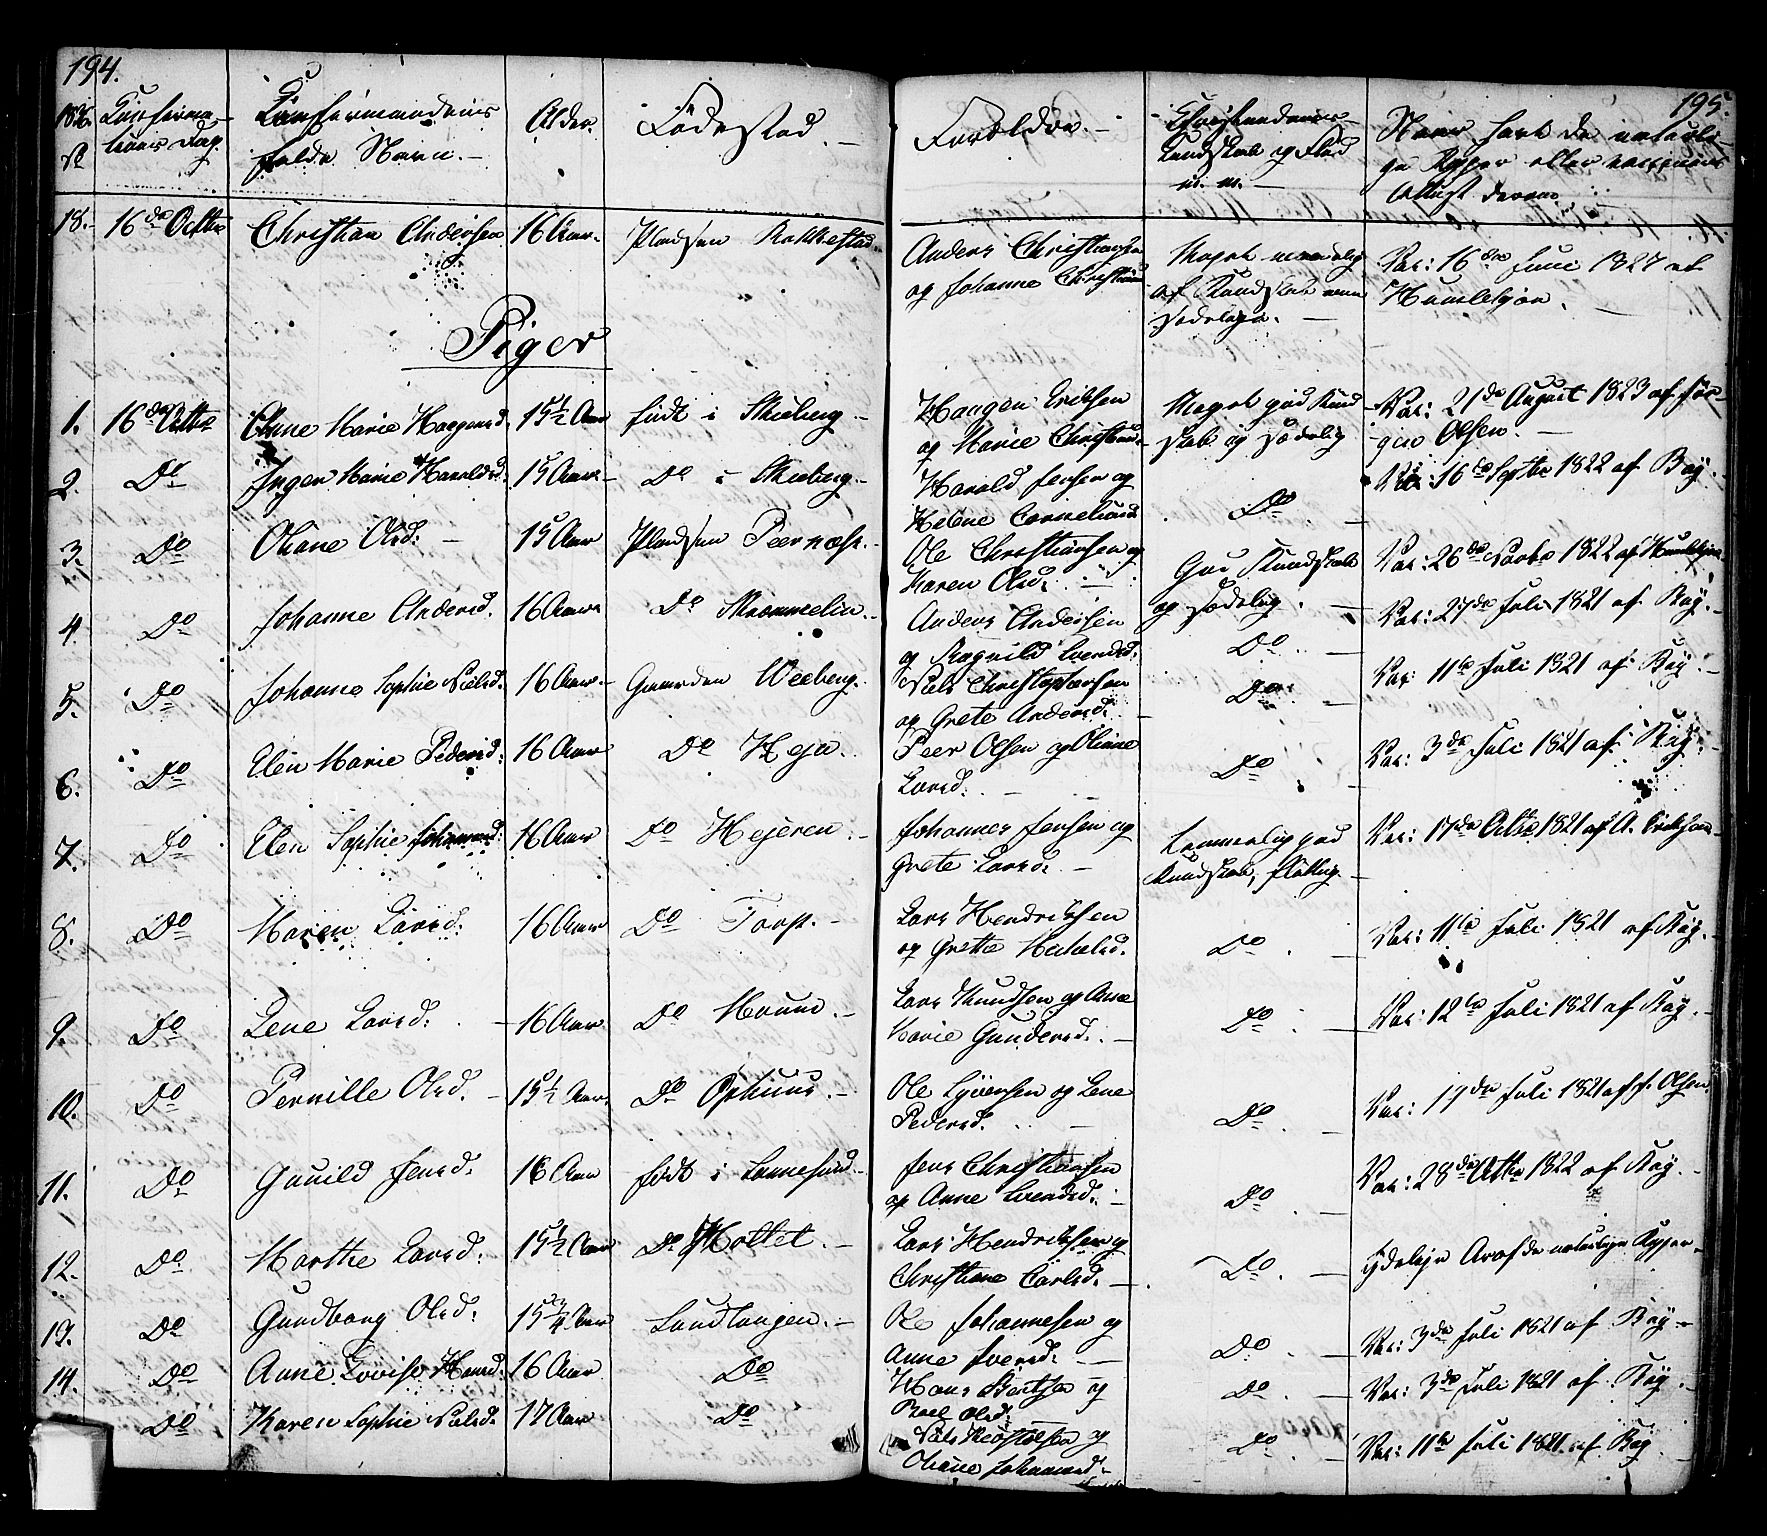 194.
Confirma-
tions Dag.
Confirmandens
fulde Navn.
Alder.
Födestæd.
18. 16de Octbr Christian Andersen 16 Aar. Pladsen Rakkestad
Piger
1. 16de Octbr Anne Marie Haagensd. 15½ Aar født i Skieberg.
2. Do Inger Marie Haraldsd. 15 Aar Do i Skieberg.
3. Do Oliane Olsd: 15 Aar Pladsen
4. Do Johanne Andersd. 16 Aar Do
5. Do Johanne Sophie Nielsd. 16 Aar Gaarden Weeberg.
6. Do Elen Marie Pedersd: 16 Aar Do Heja.
7. Do Elen Sophie Johannesd: 16 Aar Do Hejeren.
8. Do Maren Larsd: 16 Aar Do Torp.
9. Do Lene Larsd: 16 Aar Do Haune.
10. Do Pernille Olsd. 15½ Aar. Do Ophuus.
11. Do Gunild Jensd: 16 Aar født i
12. Do Marthe Larsd: 15½ Aar Do Mollet.
13. Do Gundborg Olsd: 15¾ Aar
14. Do Anne Lovise Hansd: 16 Aar Do
Do Karen Sophie Nielsd. 17 Aar Do
195.
Forældre.
Christendoms
Kundskab og Flid
m. m.
Naar havt de naturli-
ge Kopper eller vaccineret
Attest derom
Anders Christiansen Meget maadelig Vac: 16de Juni 1827 af
og Johanne Christians af Kundskab men Hunlekjøn.
sædelige.
Haagen Eriksen Meget god Kund Vac: 21de August 1823 af Jør-
og Marie Christians. skab og sædelig gen Olsen.
Harald Jensen og Do Vac: 16de Septbr 1822 af Bøy.
Helene Corneliusd
Ole Christiansen og God Kundskab Vac: 26de Novbr 1822 af
Karen Olsd: og sædelig.
Anders Andersen Do Vac: 27de Juli 1821 af Bøy.
og Ragnild Svendsd:
Niels Christophersen Do Vac: 11te Juli 1821 af Bøy.
og Grete Andersd:
Peer Olsen og Oliane Do Vac: 3de Juli 1821 af Bøy.
Larsd:
Johannes Jensen og Temmelig god Vac: 17de Octbr 1821 af A. Eriksen
Grete Larsd: Kundskab, flittig.
Lars Hendriksen Do Vac: 11te Juli 1821 af Bøy.
og Grethe Michelsd.
Lars Knudsen og Anne Do Vac: 12te Juli 1821 af Bøy.
Marie Gundersd.
Ole Syversen og Lene Do Vac: 17de Juli 1821 af J. Olsen
Pedersd.
Jens Christiansen Do Vac: 28de Octbr 1822 af Bøy.
og Anne Svendsd:
Lars Hendriksen og Do naturlige Kopper
Christiane Carlsd.
Ole Johannesen og Do Vac: 3de Juli 1821 af Bøy
Anne Iversd:
Hans Bentsen og Do Vac: 3de Juli 1821 af Bøy.
Olsd:
Niels og Do Vac: 11te Juli 1821 af Bøy
Oliane Johannesd.